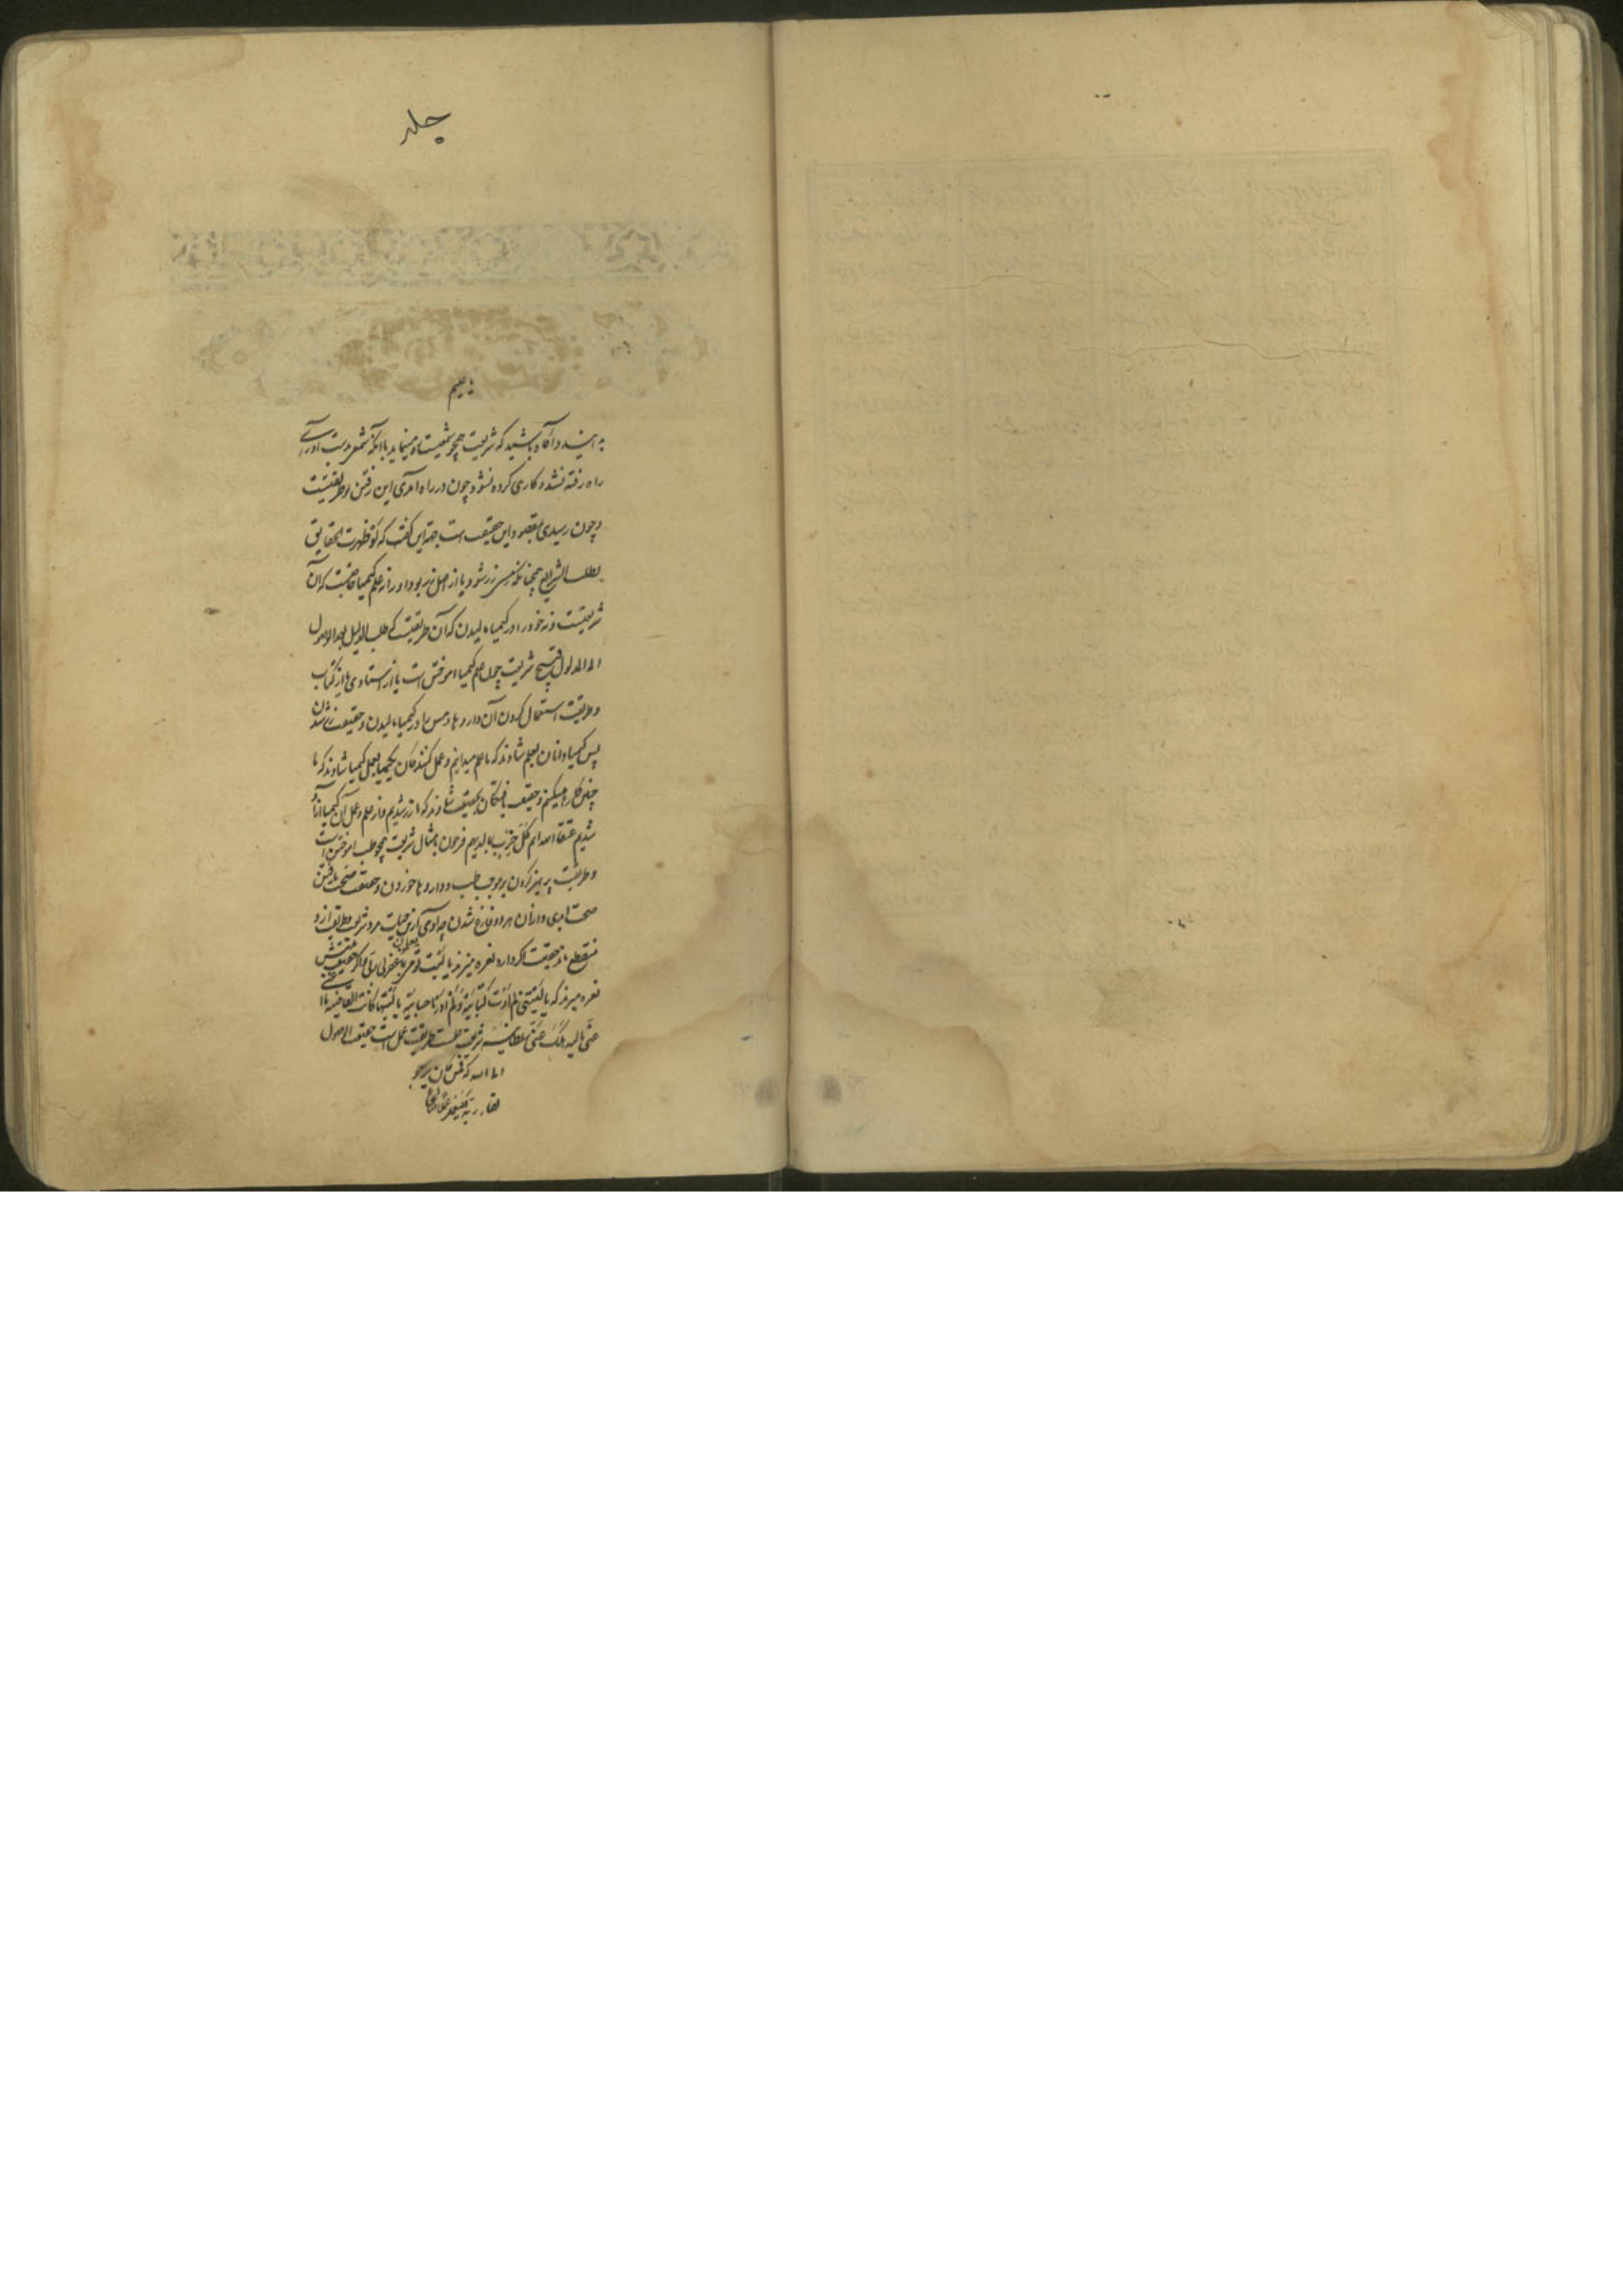 جلد
بدانید و آگاه باشید که شریعت همچو شمعیست ره مینماید بی آنکه شمع بدست آوری
راه رفته نشد و کاری کرده نشود چون در راه آمدی این رفتن تو طریقتست
و چون رسیدی بمقصود این حقیقت است جهة این گفت که لو ظهرت الحقایق
بطلت الشرایع همچنانکه مس زر شود یا از اصل زر بود او را نه علم کیمیا حاجتست که آن
شریعتست و نه خود را در کیمیا مالیدن که آن طریقتست که طلب الدلیل بعد الوصول
الی المدلول قبیح شریعت چون علم کیمیا آموختن است یا از استادی یا از کتاب
و طریقت استعمال کردن آن داروها و مس را در کیمیا مالیدن و حقیقت زر شدن
پس کیمیا دانان بعلم شادند که ما علم میدانیم و عمل کنندگان کیمیا بعمل کیمیا شادند که ما
چنین کارها میکنیم و حقیقت یافتگان بحقیقت شادند که ما زر شدیم و از علم و عمل آن کیمیا آزاد
شدیم عتقا الله ایم کل حزب بما لدیهم فرحون یا مثال شریعت همچو طب آموختن است
و طریقت پرهیز کردن بموجب طب و داروها خوردن و حقیقت صحت یافتن
صحت ابدی و از آن هر دو فارغ شدن چو آدمی ازین حیات مرد شریعت و طریقت ازو
منقطع ماند حقیقت اگر دارد نعره میزند یا لیت قومی یعلمون بما غفر لی ربی و اگر حقیقتش نیست
نعره میزند که یا لیتنی لم اوت کتابیه و لم ادر ما حسابیه یا لیتها کانت القاضیه ما اغنی
عنی مالیه هلک عنی سلطانیه شریعت علمست طریقت عمل است حقیقت الوصول
الی الله که فمن کان یرجو
لقاء ربه فلیعمل عملا صالحا